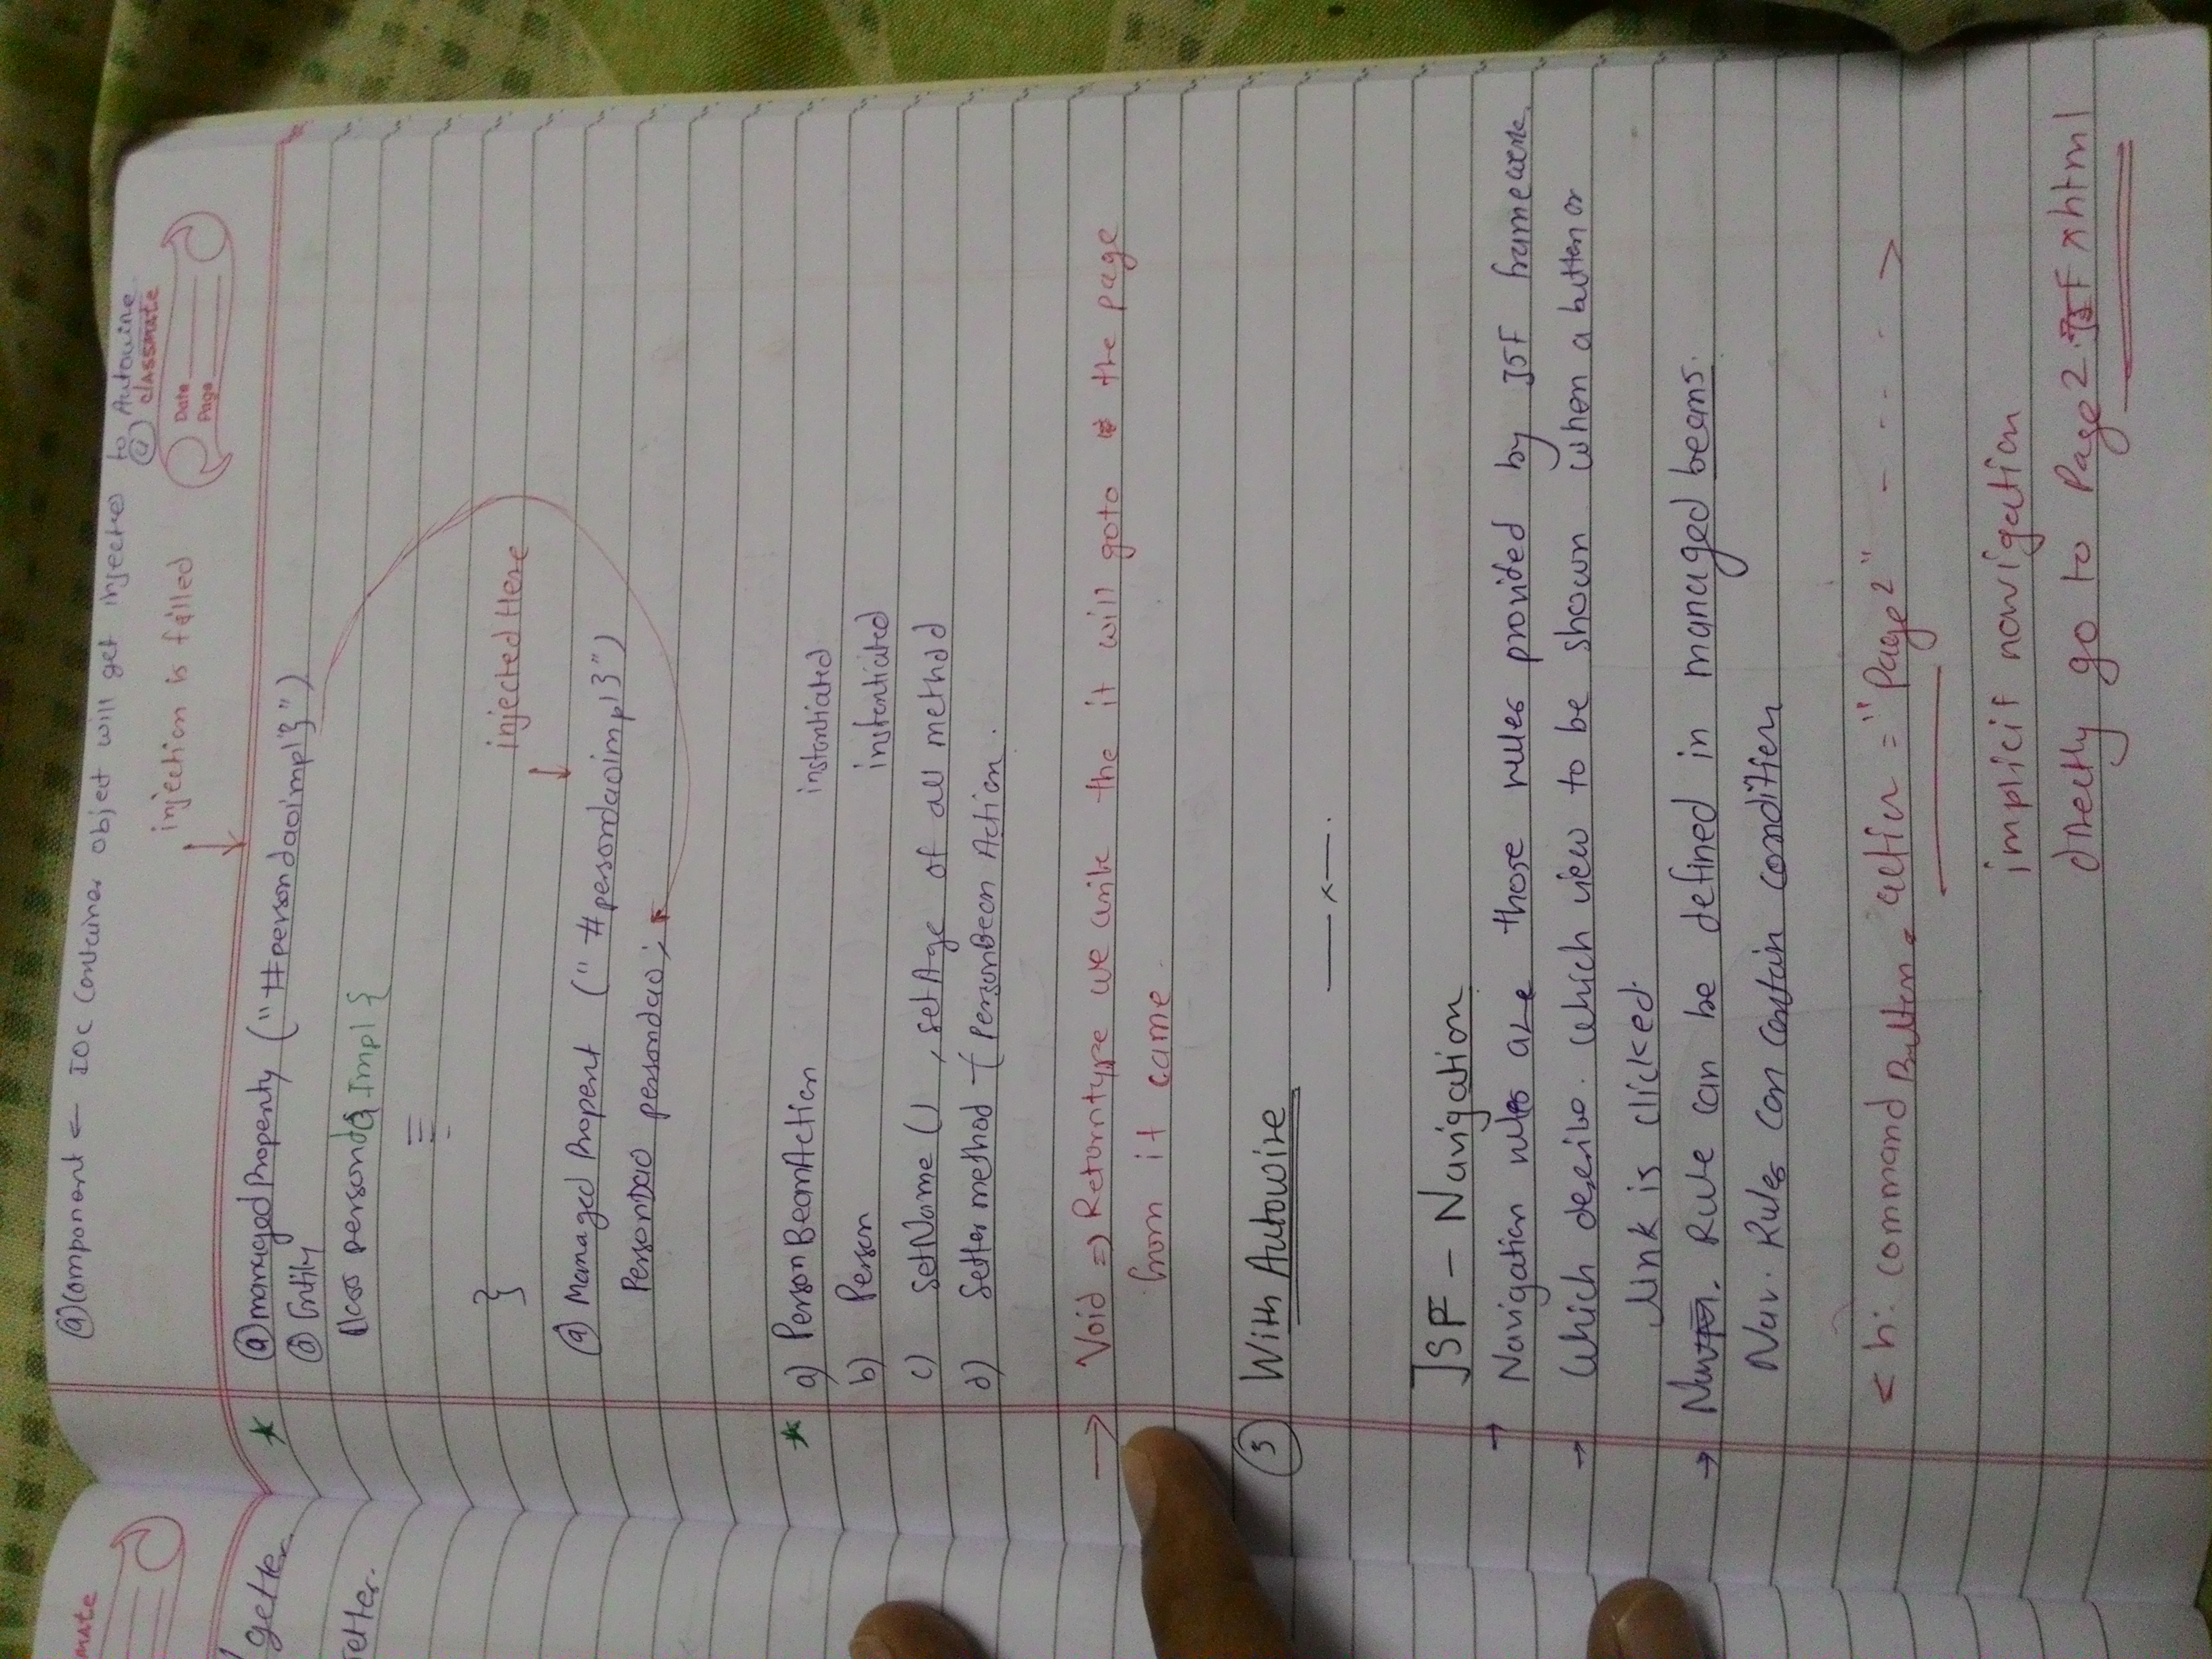 @Component ← IOC Container object will get injected to Autowire
@
classmate
Date
Page
injection is filled
@managedProperty ("#persondaoimpl}")
@Entity
Class persondaImpl {
}
injected Here
@ Managed Propert ("#persondaoimpl}")
PersonDAO persondao;
a) PersonBeanAction instantiated
b) Person instantiated
c) setName () , setAge of all method
d) Setter method { PersonBean Action.
→ Void => Returntype we write the it will goto the page
from it came.
3 With Autowire
—x—.
JSF - Navigation
→ Navigation rules are those rules provided by JSF framework.
→ Which describe. which view to be shown when a button or
link is clicked.
→ Rule can be defined in managed beans.
Nav. Rules can contain condition
< h: command Button. action = "Page2" - - - - >
implicit navigation
directly go to Page2. xhtml
getter.
setter.
mate